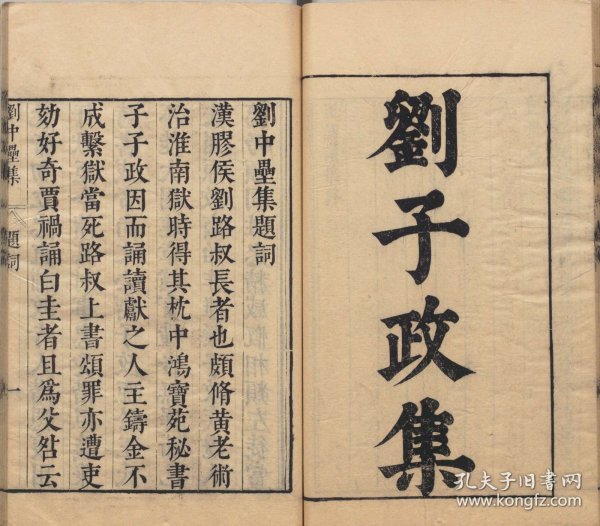 劉子政集
劉中壘集題詞
漢膠侯劉路叔長者也頗脩黃老術
治淮南獄時得其枕中鴻寶苑秘書
子子政因而誦讀獻之人主鑄金不
成繫獄當死路叔上書頌罪亦遭吏
劾好奇賈禍誦白圭者且爲父咎云
劉中壘集
題詞
一
孔夫子旧书网
www.kongfz.com